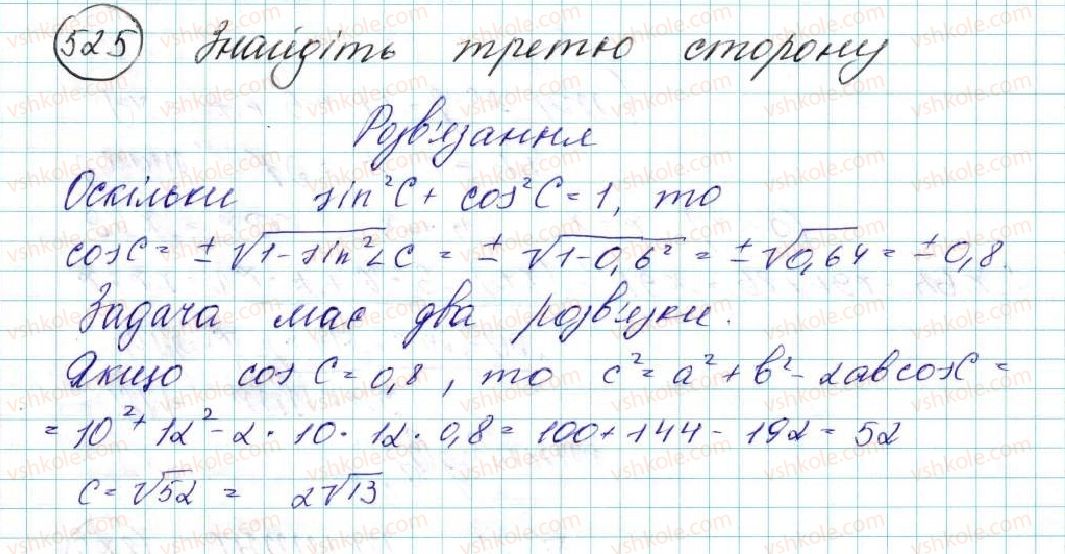 525 Знайдіть третю сторону
Розв'язання
Оскільки sin²C + cos²C = 1, то
cosC = ± √1-sin²∠C = ± √1-0,6² = ±√0,64 = ±0,8.
Задача має два розв'язки.
Якщо cos C = 0,8, то c² = a² + b² - 2abcosC =
= 10² + 12² - 2 · 10 · 12 · 0,8 = 100 + 144 - 192 = 52
c = √52 = 2√13